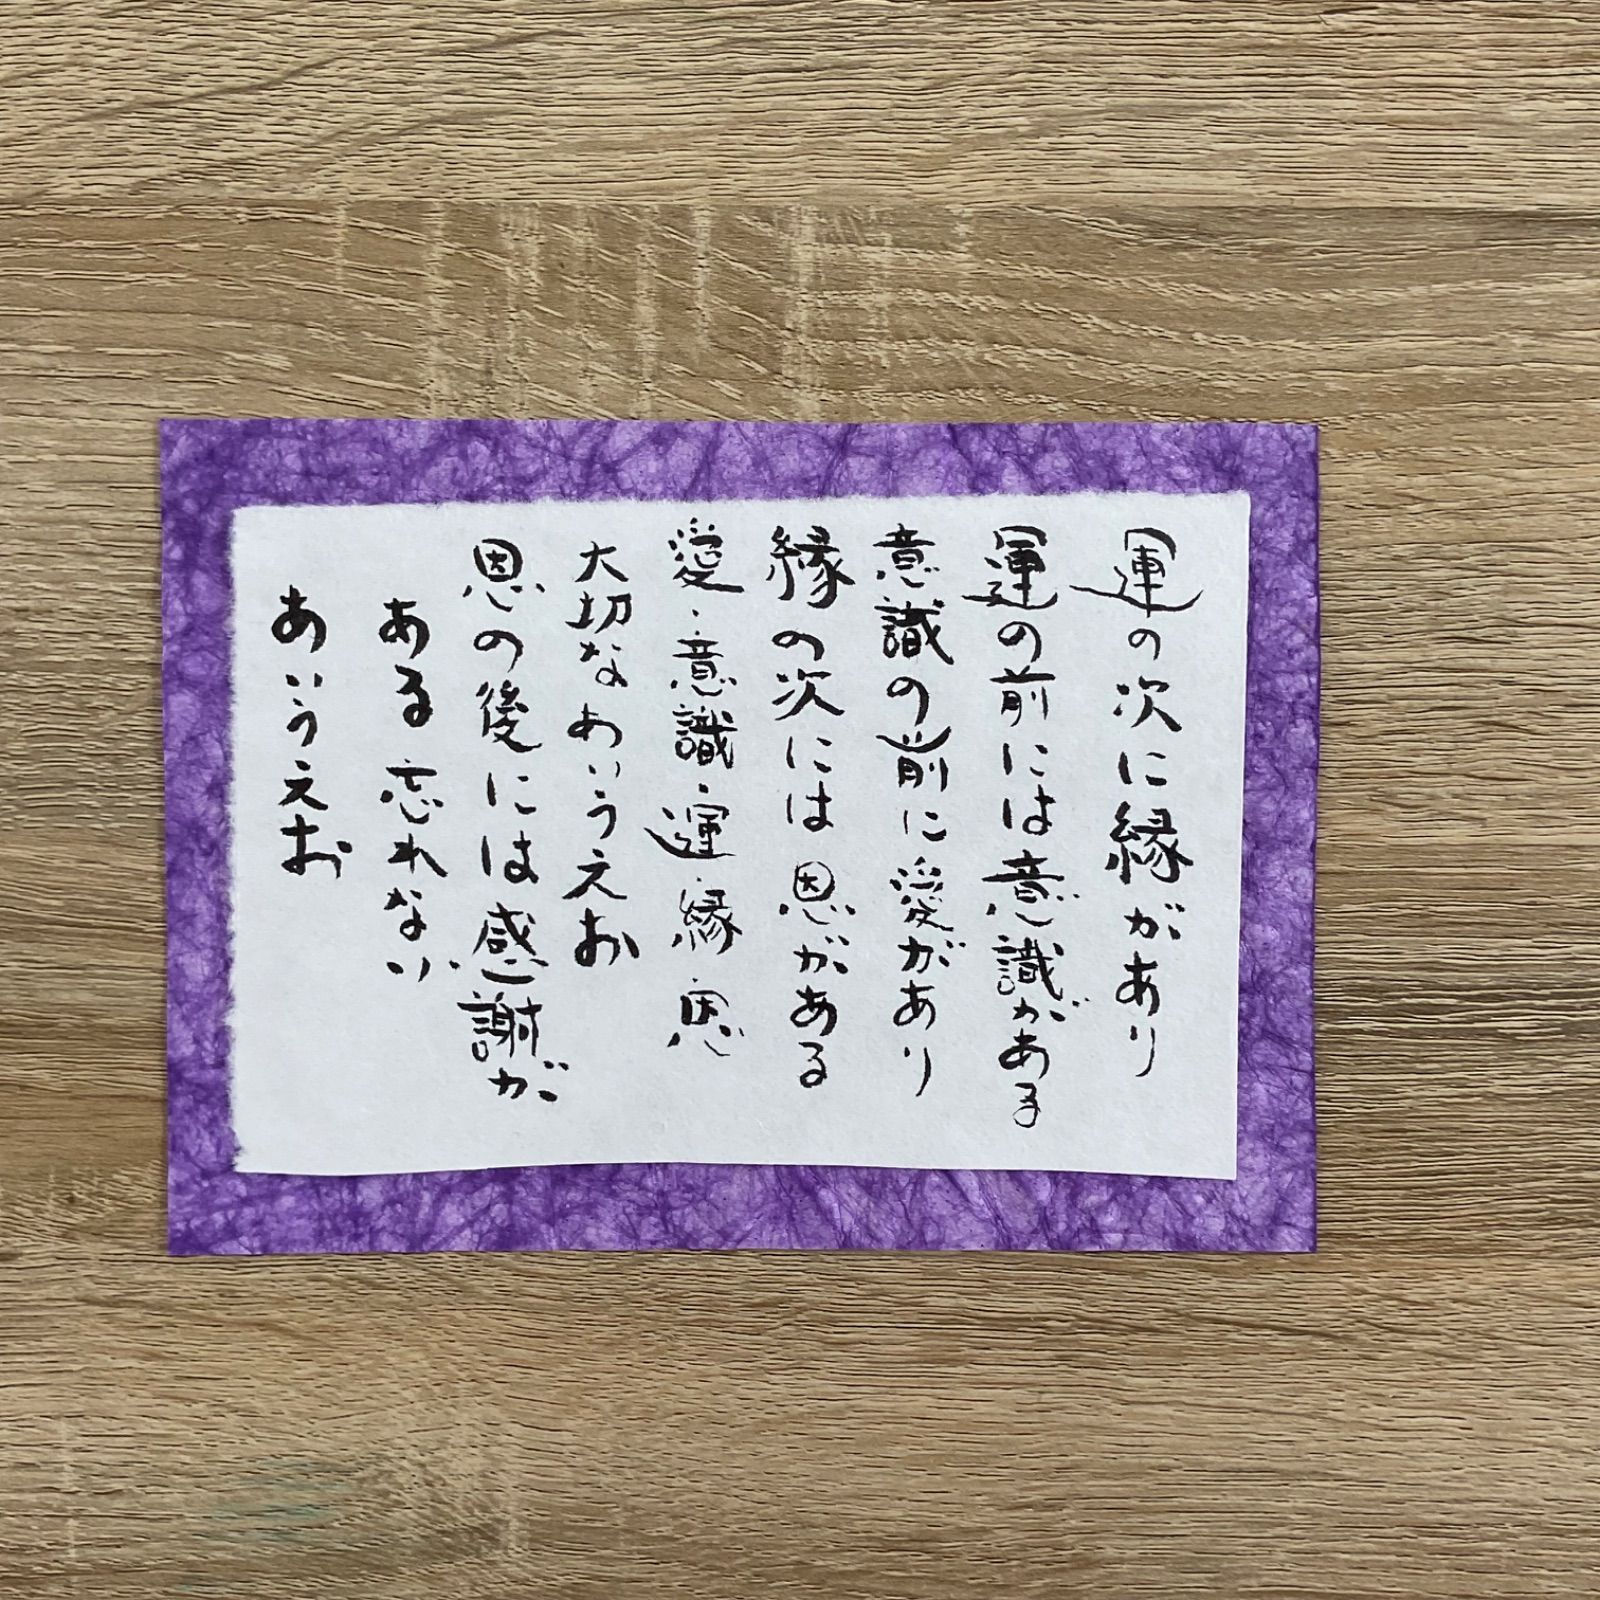 運の次に縁があり
運の前には意識がある
意識の前に愛があり
縁の次には恩がある
愛・意識・運・縁・恩
大切なあいうえお
恩の後には感謝が
ある忘れない
あいうえお